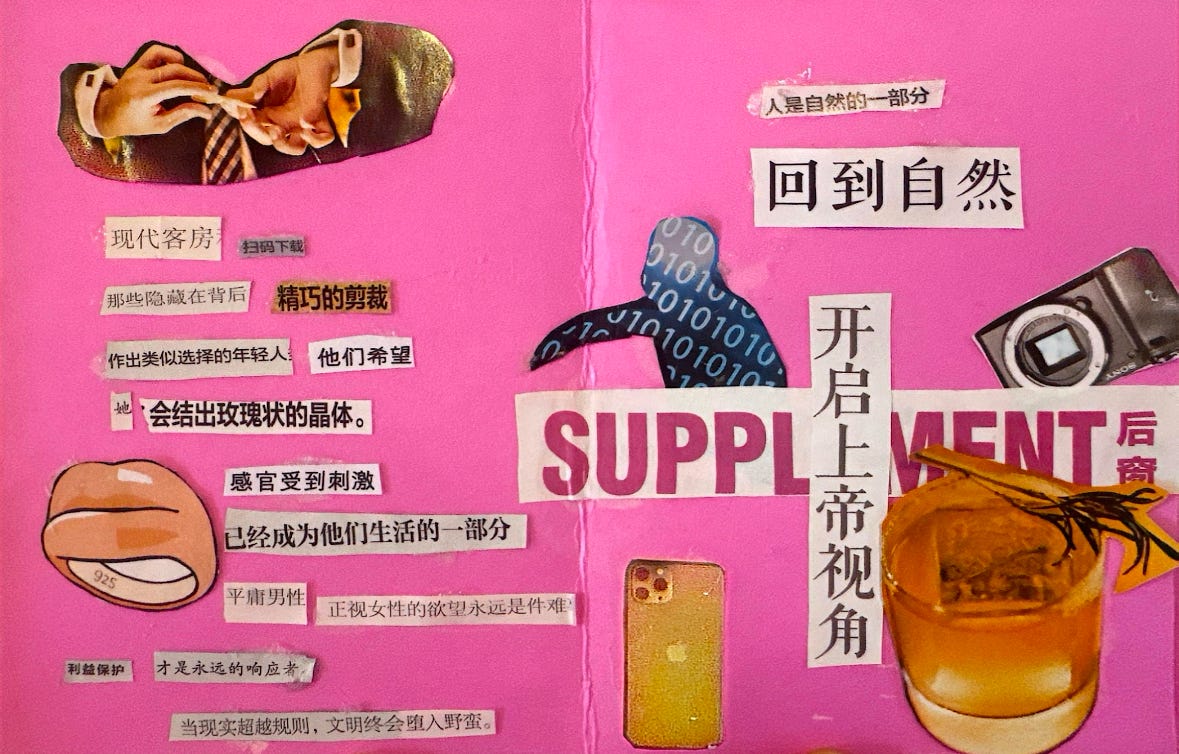 现代客房 扫码下载
那些隐藏在背后 精巧的剪裁
作出类似选择的年轻人 他们希望
她 会结出玫瑰状的晶体。
感官受到刺激
已经成为他们生活的一部分
925
平庸男性 正视女性的欲望永远是件难
利益保护 才是永远的响应者。
当现实超越规则，文明终会堕入野蛮。
人是自然的一部分
回到自然
010
010101
01010101010
0101010101010
1010101010
01010
SONY
开启上帝视角
SUPPLEMENT
后窗